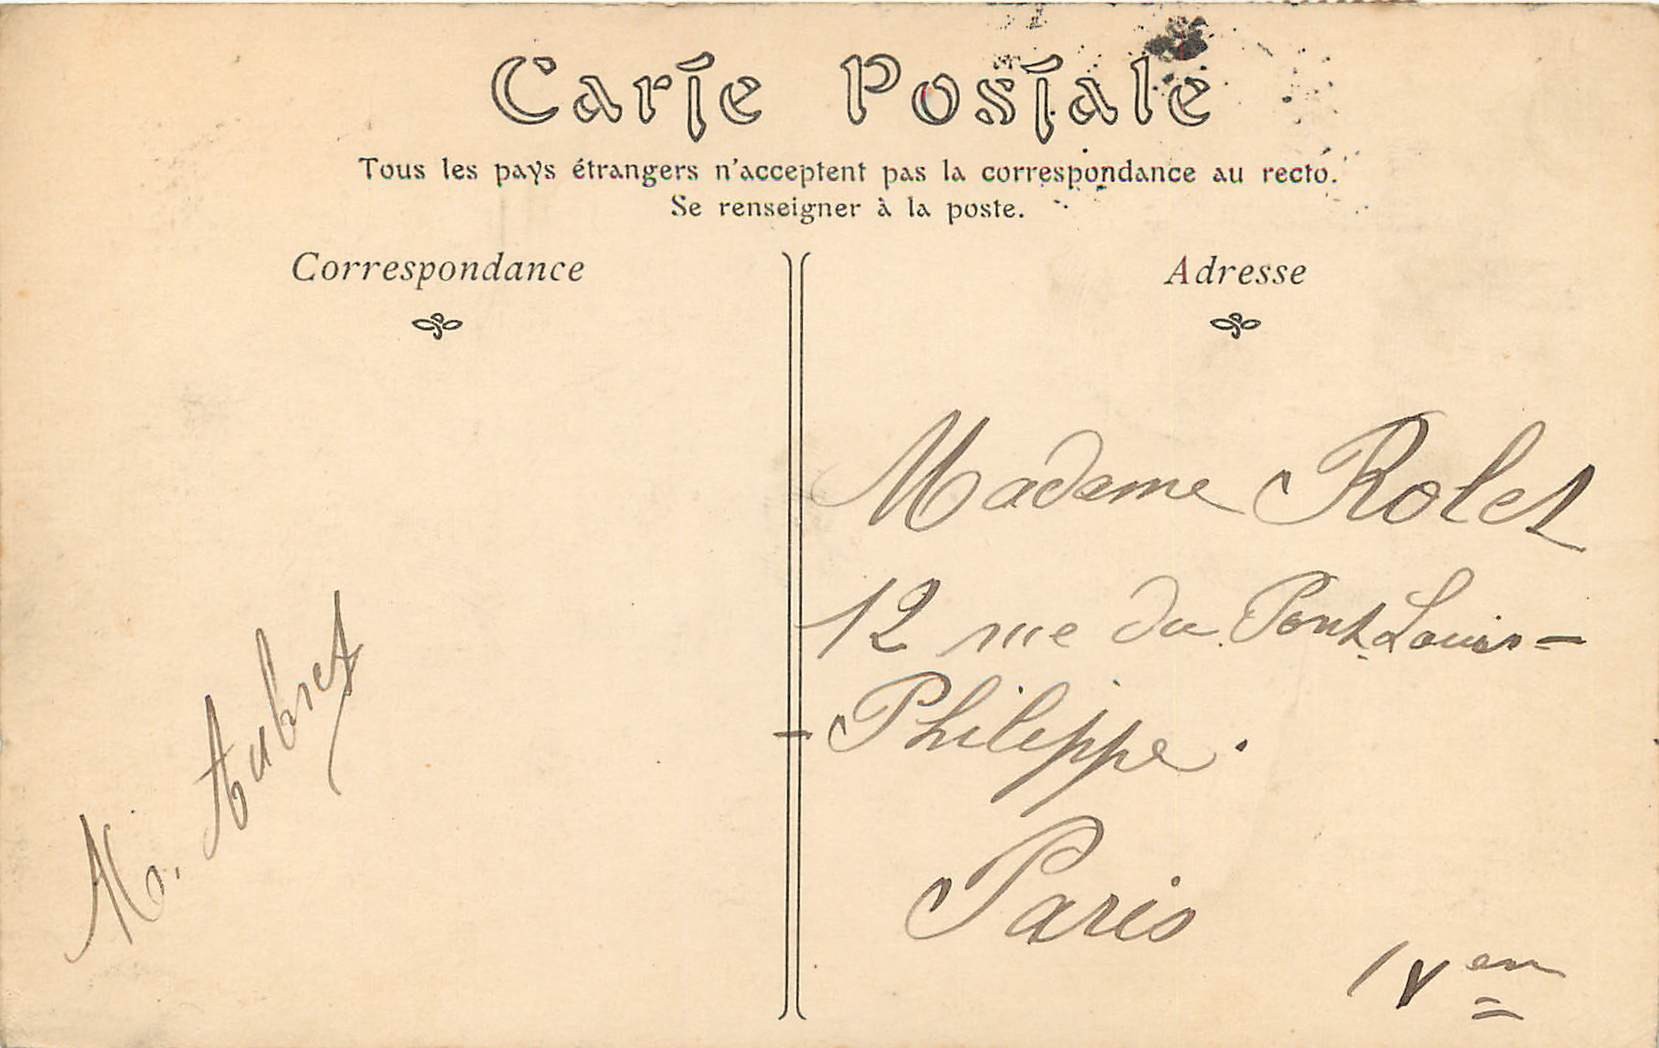 Carte Postale
Tous les pays étrangers n'acceptent pas la correspondance au recto.
Se renseigner à la poste.
Correspondance
Adresse
Madame Rolet
12 rue du Pont Louis-
-Philippe.
Paris
IVem
M. Aubret